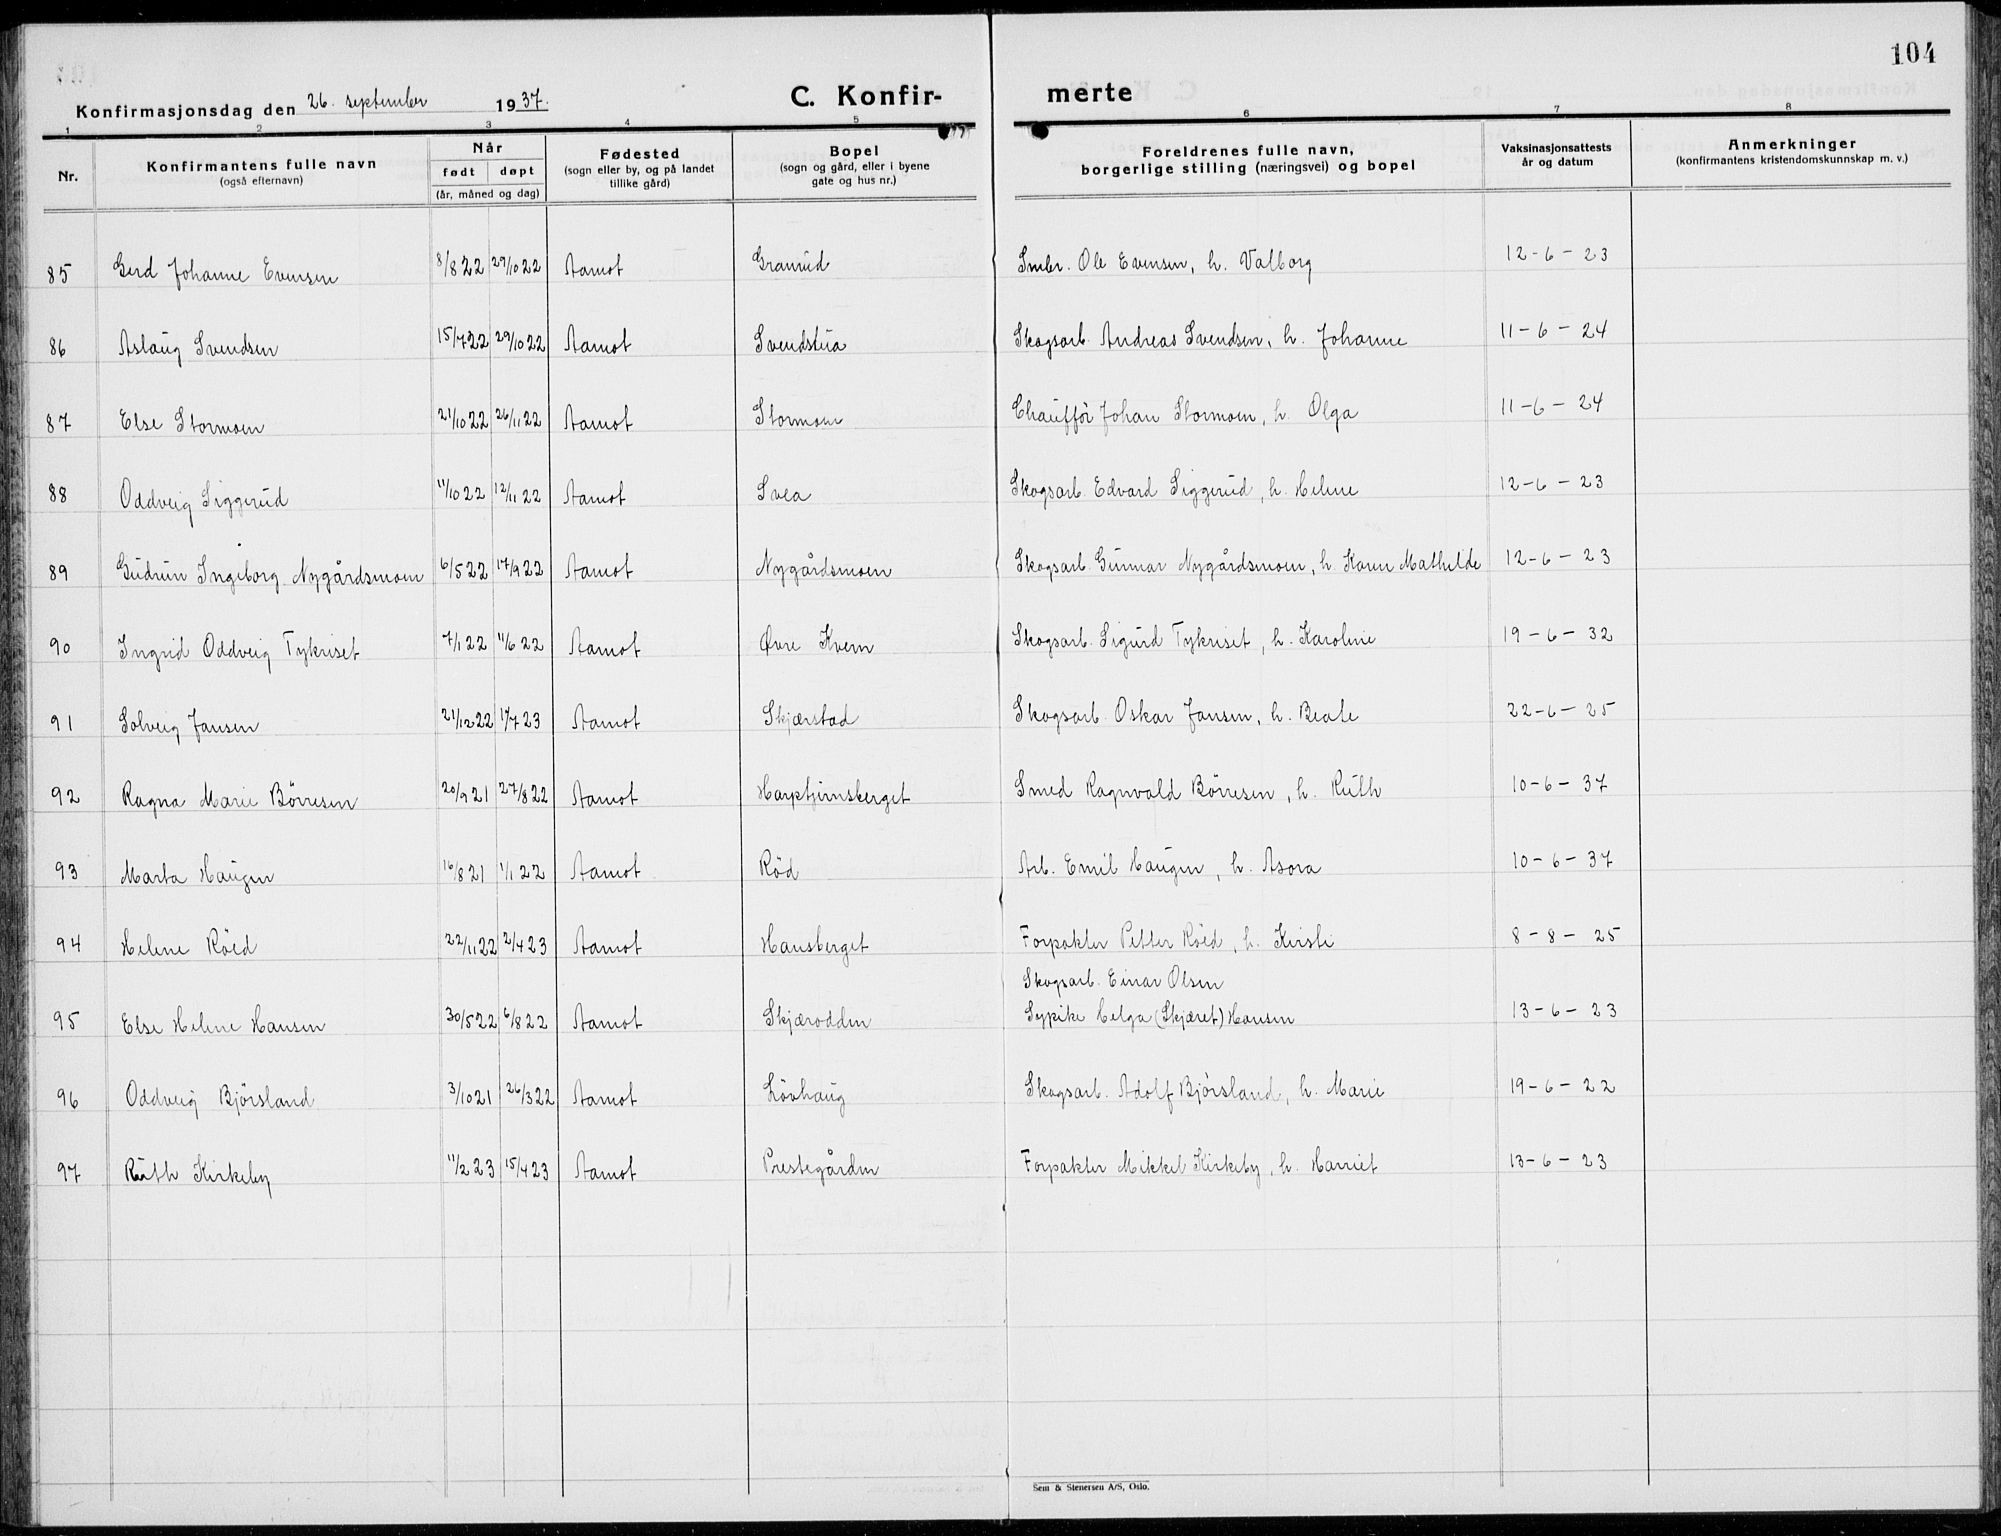 104
Konfirmasjonsdag den 26. september 1937.
C. Konfir-
merte
1 2 3 4 5 6 7 8
Nr.
Konfirmantens fulle navn
(også efternavn)
Når
født døpt
(år, måned og dag)
Fødested
(sogn eller by, og på landet
tillike gård)
Bopel
(sogn og gård, eller i byene
gate og hus nr.)
Foreldrenes fulle navn,
borgerlige stilling (næringsvei) og bopel
Vaksinasjonsattests
år og datum
Anmerkninger
(konfirmantens kristendomskunnskap m. v.)
85 Gerd Johanne Evensen 8/8 22 29/10 22 Aamot Granrud Smbr. Ole Evensen, h. Valborg 12-6-23
86 Aslaug Svendsen 15/7 22 29/10 22 Aamot Svendstua Skogsarb. Andreas Svendsen, h. Johanne 11-6-24
87 Else Stormoen 21/10 22 26/11 22 Aamot Stormoen Chaufför Johan Stormoen, h. Olga 11-6-24
88 Oddveig Siggerud 11/10 22 12/11 22 Aamot Svea Skogsarb. Edvard Siggerud, h. Helene 12-6-23
89 Gudrun Ingeborg Nygårdsmoen 6/5 22 17/9 22 Aamot Nygårdsmoen Skogsarb. Gunnar Nygårdsmoen, h. Karen Mathilde 12-6-23
90 Ingrid Oddveig Tykriset 7/1 22 11/6 22 Aamot Øvre Kvern Skogsarb. Sigurd Tykriset, h. Karoline 19-6-32
91 Solveig Jansen 21/12 22 1/7 23 Aamot Skjærstad Skogsarb. Oskar Jansen, h. Beate 22-6-25
92 Ragna Marie Børresen 20/9 21 27/8 22 Aamot Harptjernsberget Smed Ragnvald Børresen, h. Ruth 10-6-37
93 Marta Haugen 16/8 21 1/1 22 Aamot Röd Arb. Emil Haugen, h. Asora 10-6-37
94 Helene Röed 22/11 22 2/4 23 Aamot Hansberget Forpakter Petter Röed, h. Kirsti 8-8-25
Skogsarb. Einar Olsen
95 Else Helene Hansen 30/5 22 6/8 22 Aamot Skjærodden Sypike Helga (Skjæret) Hansen 13-6-23
96 Oddveig Bjørsland 3/10 21 26/3 22 Aamot Lövhaug Skogsarb. Adolf Bjørsland, h. Marie 19-6-22
97 Ruth Kirkeby 11/2 23 15/4 23 Aamot Prestegården Forpakter Mikkel Kirkeby, h. Harriet 13-6-23
Sem & Stenersen A/S, Oslo.